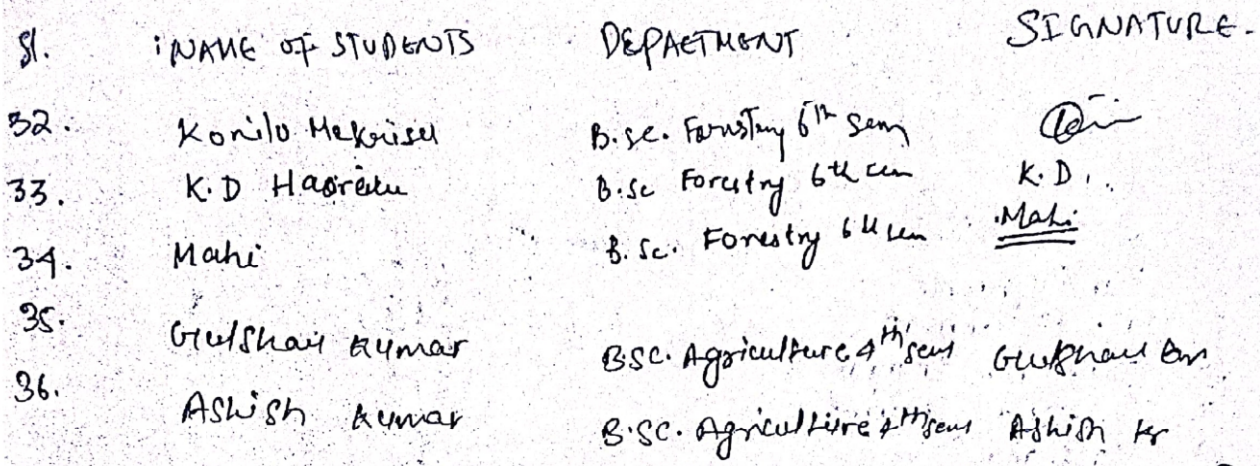 Sl. NAME OF STUDENTS DEPARTMENT SIGNATURE.
32. Konilo B.Sc. Forestry 6th Sem
33. K.D B.Sc Forestry 6th sem K.D.
34. Mahi B.Sc. Forestry 6th sem Mahi
35. Gulshan Kumar BSC. Agriculture 4th sem Gulshan Kr
36. Ashish Kumar B.SC. Agriculture 4th sem Ashish Kr